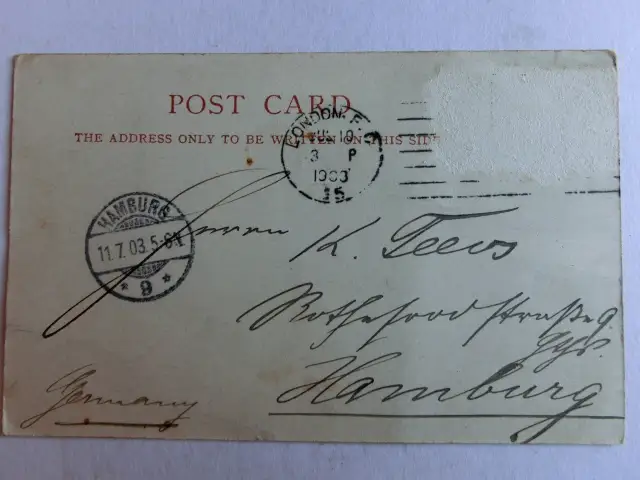 POST CARD
THE ADDRESS ONLY TO BE WRITTEN ON THIS SIDE
LONDON. E.C
JUL 10
3 P
1903
15
HAMBURG
11.7.03. 5-6N
* 9 *
Herrn K. Teevs
Hamburg
Germany